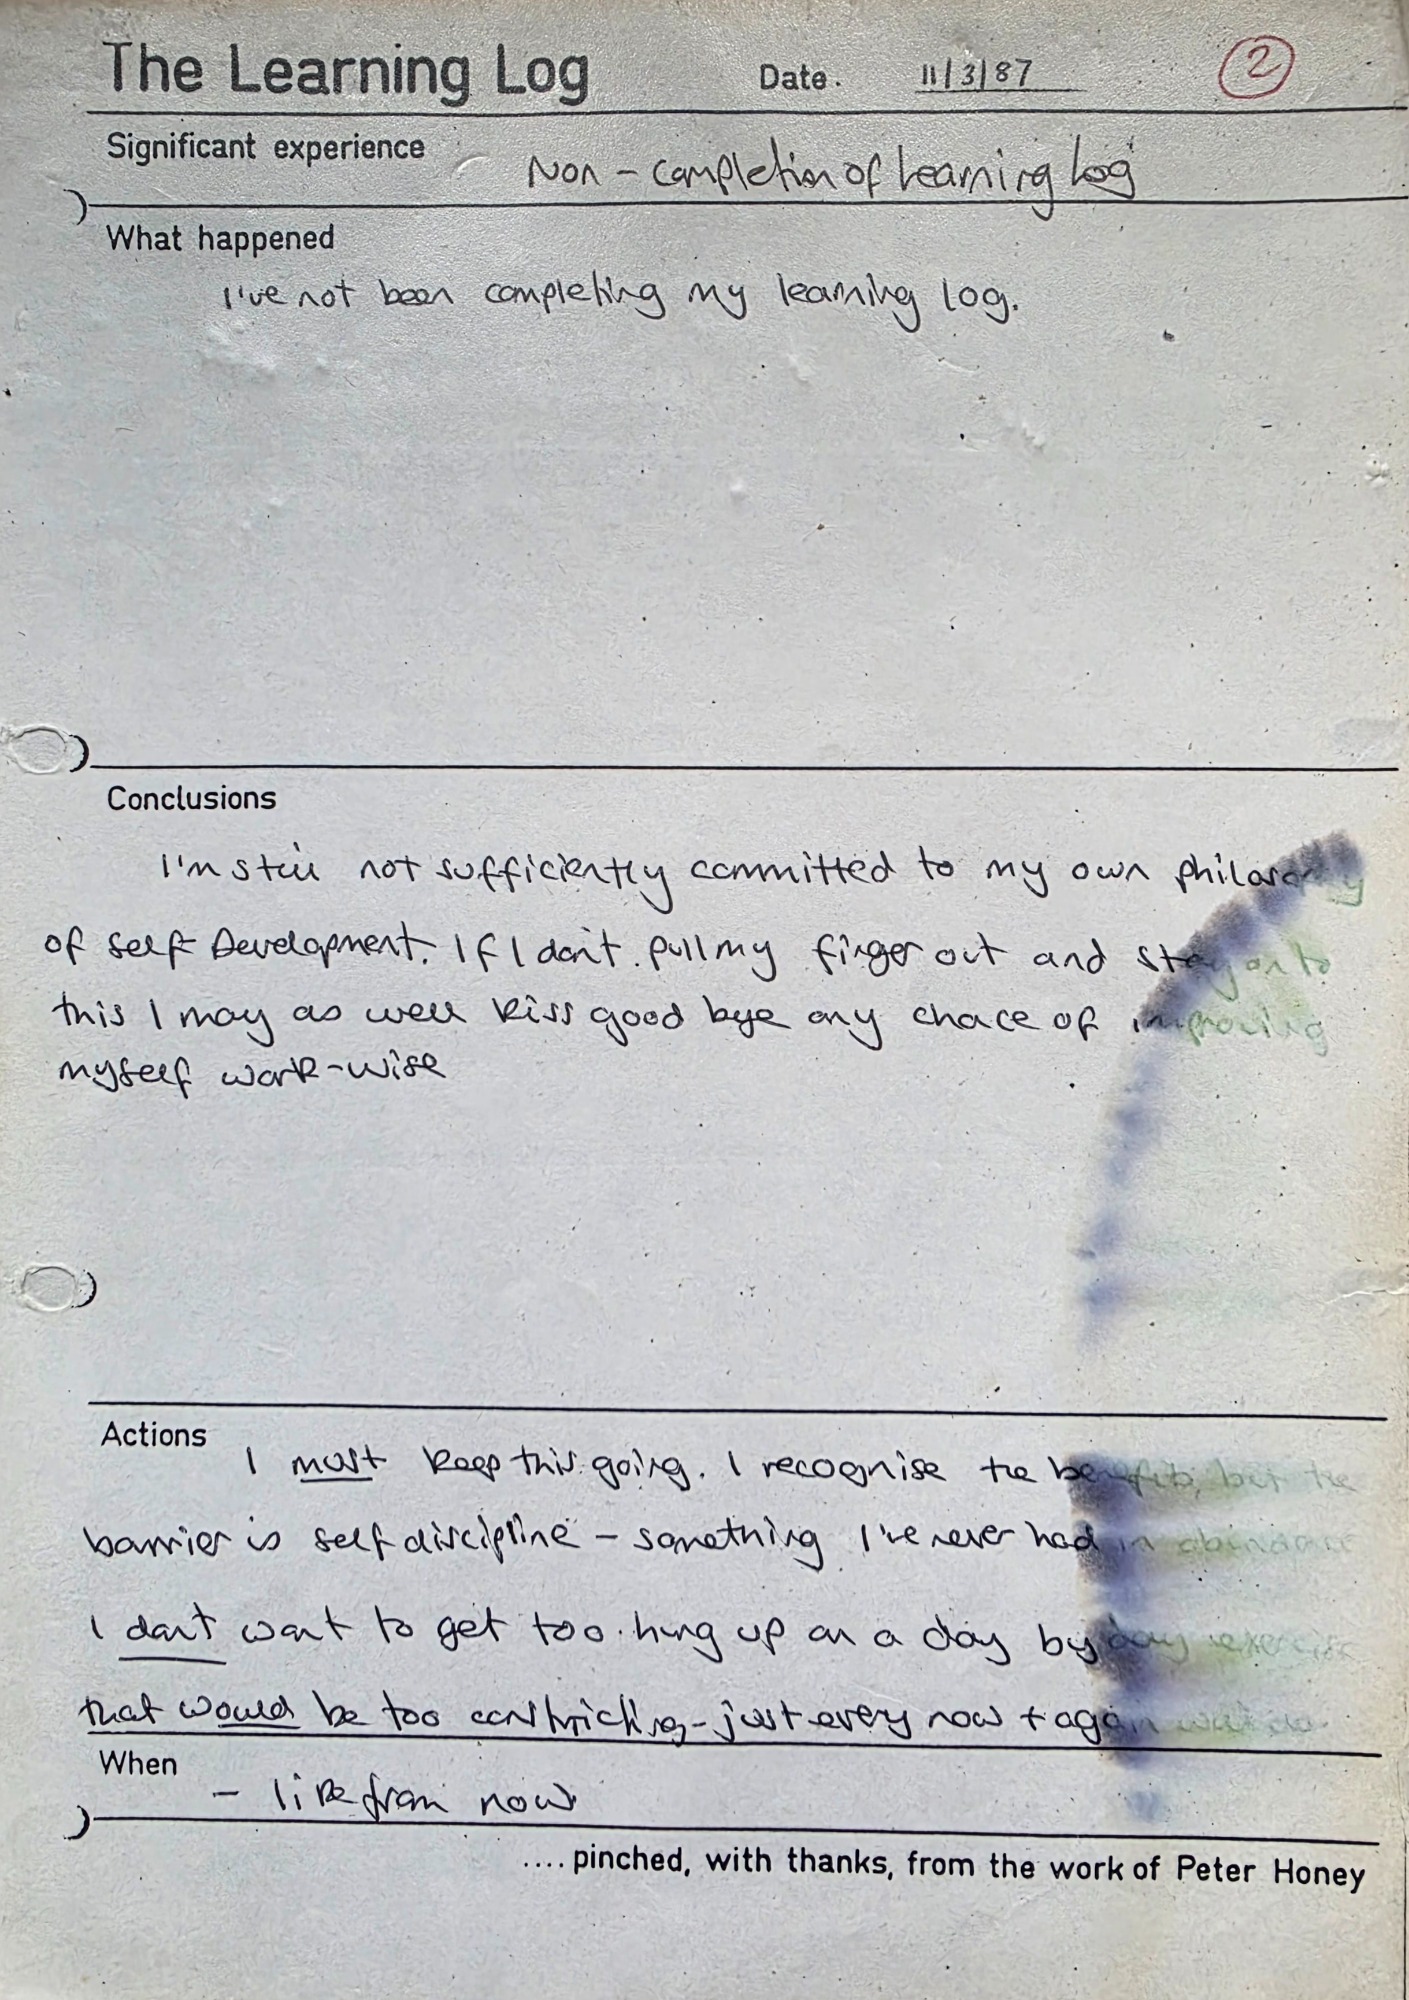 The Learning Log Date. 11/3/87 2
Significant experience Non - completion of Learning Log
What happened
I've not been completing my learning log.
Conclusions
I'm still not sufficiently committed to my own philosophy
of self Development. If I don't pull my finger out and stay on to
this I may as well kiss good bye any chace of improving
myself work-wise
Actions
I must keep this going. I recognise the benefits, but the
barrier is self discipline - something I've never had in
I don't want to get too hung up on a day by day exercise
that would be too constricting - just every now + again will do
When
- like from now
.... pinched, with thanks, from the work of Peter Honey